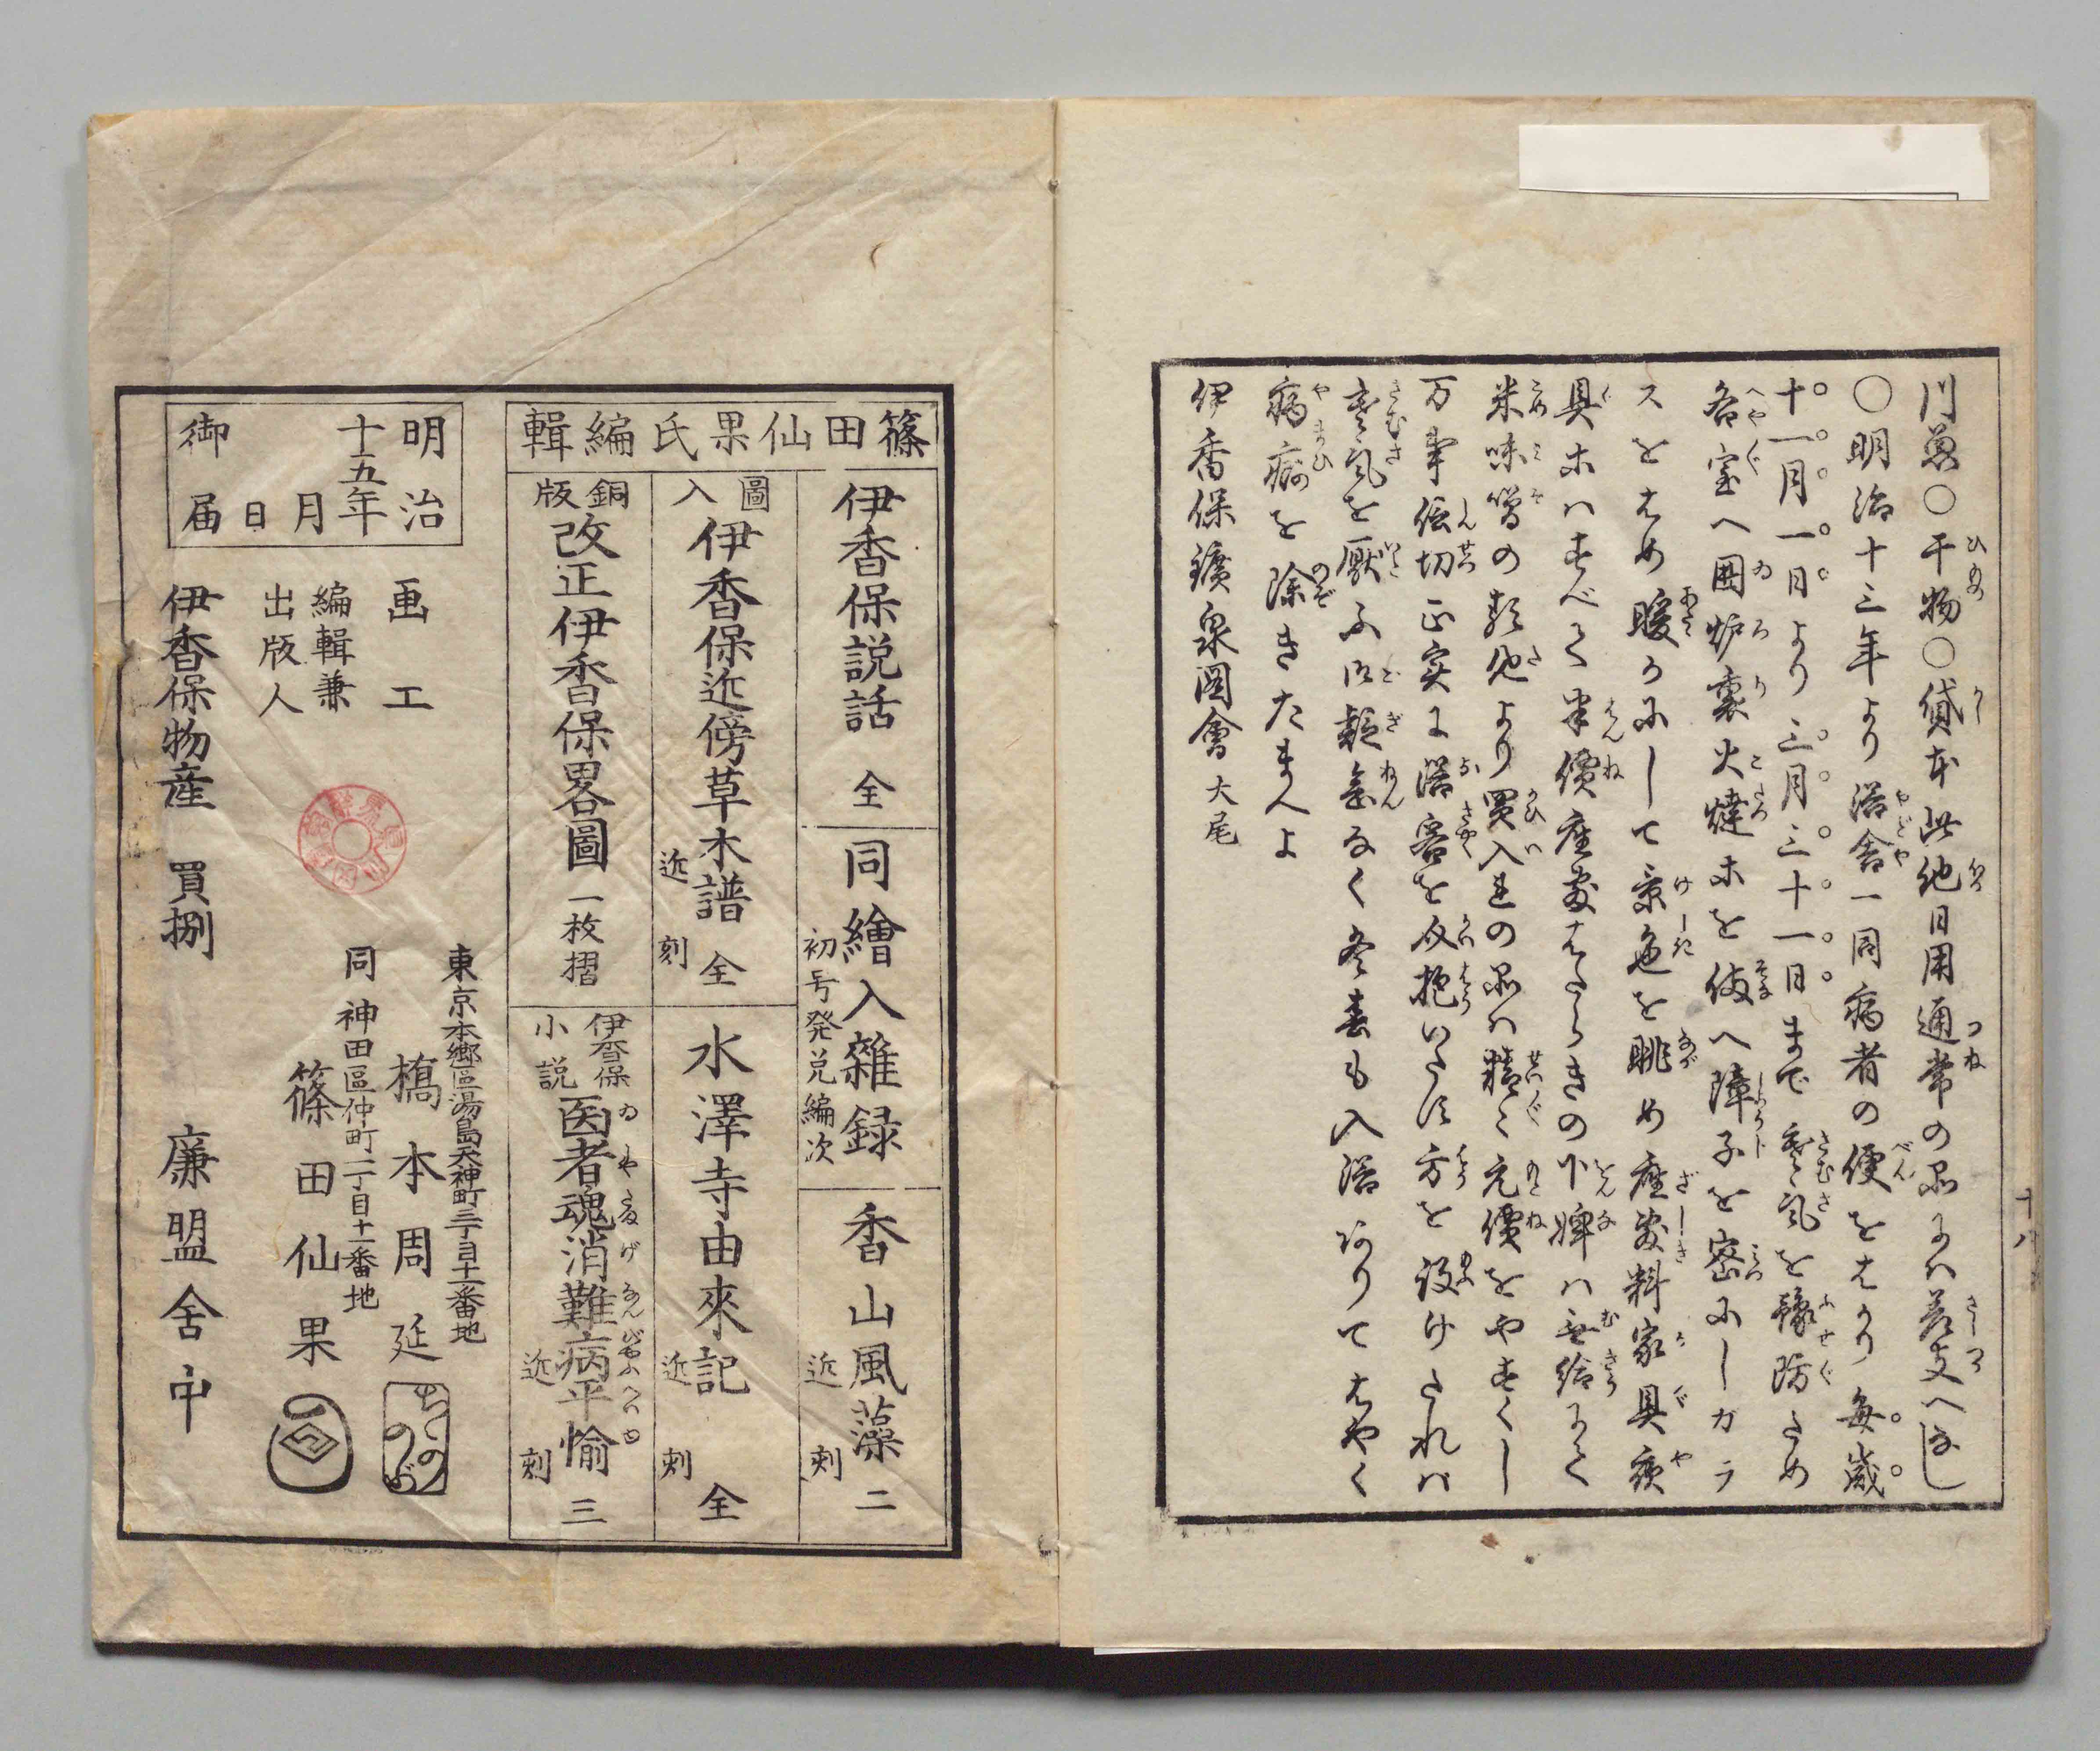 川魚〇干物〇貸本此他日用通常の品々ハ差支へなし
〇明治十三年より浴舎一同病者の便をはかり毎歳
十一月一日より三月三十一日まで寒気を豫防ため
各室へ囲炉裏火燵木を備へ障子を密にしガラ
スをはめ暖かにして景色を眺め座敷料家具夜
具木ハすべて半價座敷はたらきの下婢ハ無給にて
米味噌の類他より買入其の品ハ精々元價をやすくし
万事信切正実に浴客を介抱いたす方を設けたれハ
寒気を厭ふ御懸念なく冬春も入浴ありてはやく
病痾を除きたまへよ
伊香保鑛泉圖會 大尾
十八
篠田仙果氏編輯
伊香保説話 全
同繪入雜録 初号発兑編次
香山風藻 二 近刻
圖入 伊香保近傍草木譜 全 近刻
水澤寺由來記 全 近刻
銅版 改正伊香保畧圖 一枚摺
伊香保小説 医者魂消難病平愉 三 近刻
明治十五年 月 日 御届
東京本郷區湯島天神町三丁目十一番地
画工 橋本周延
ちかのぶ
同 神田區仲町二丁目十一番地
編輯兼出版人 篠田仙果
伊香保物産 買捌 廉盟舍中